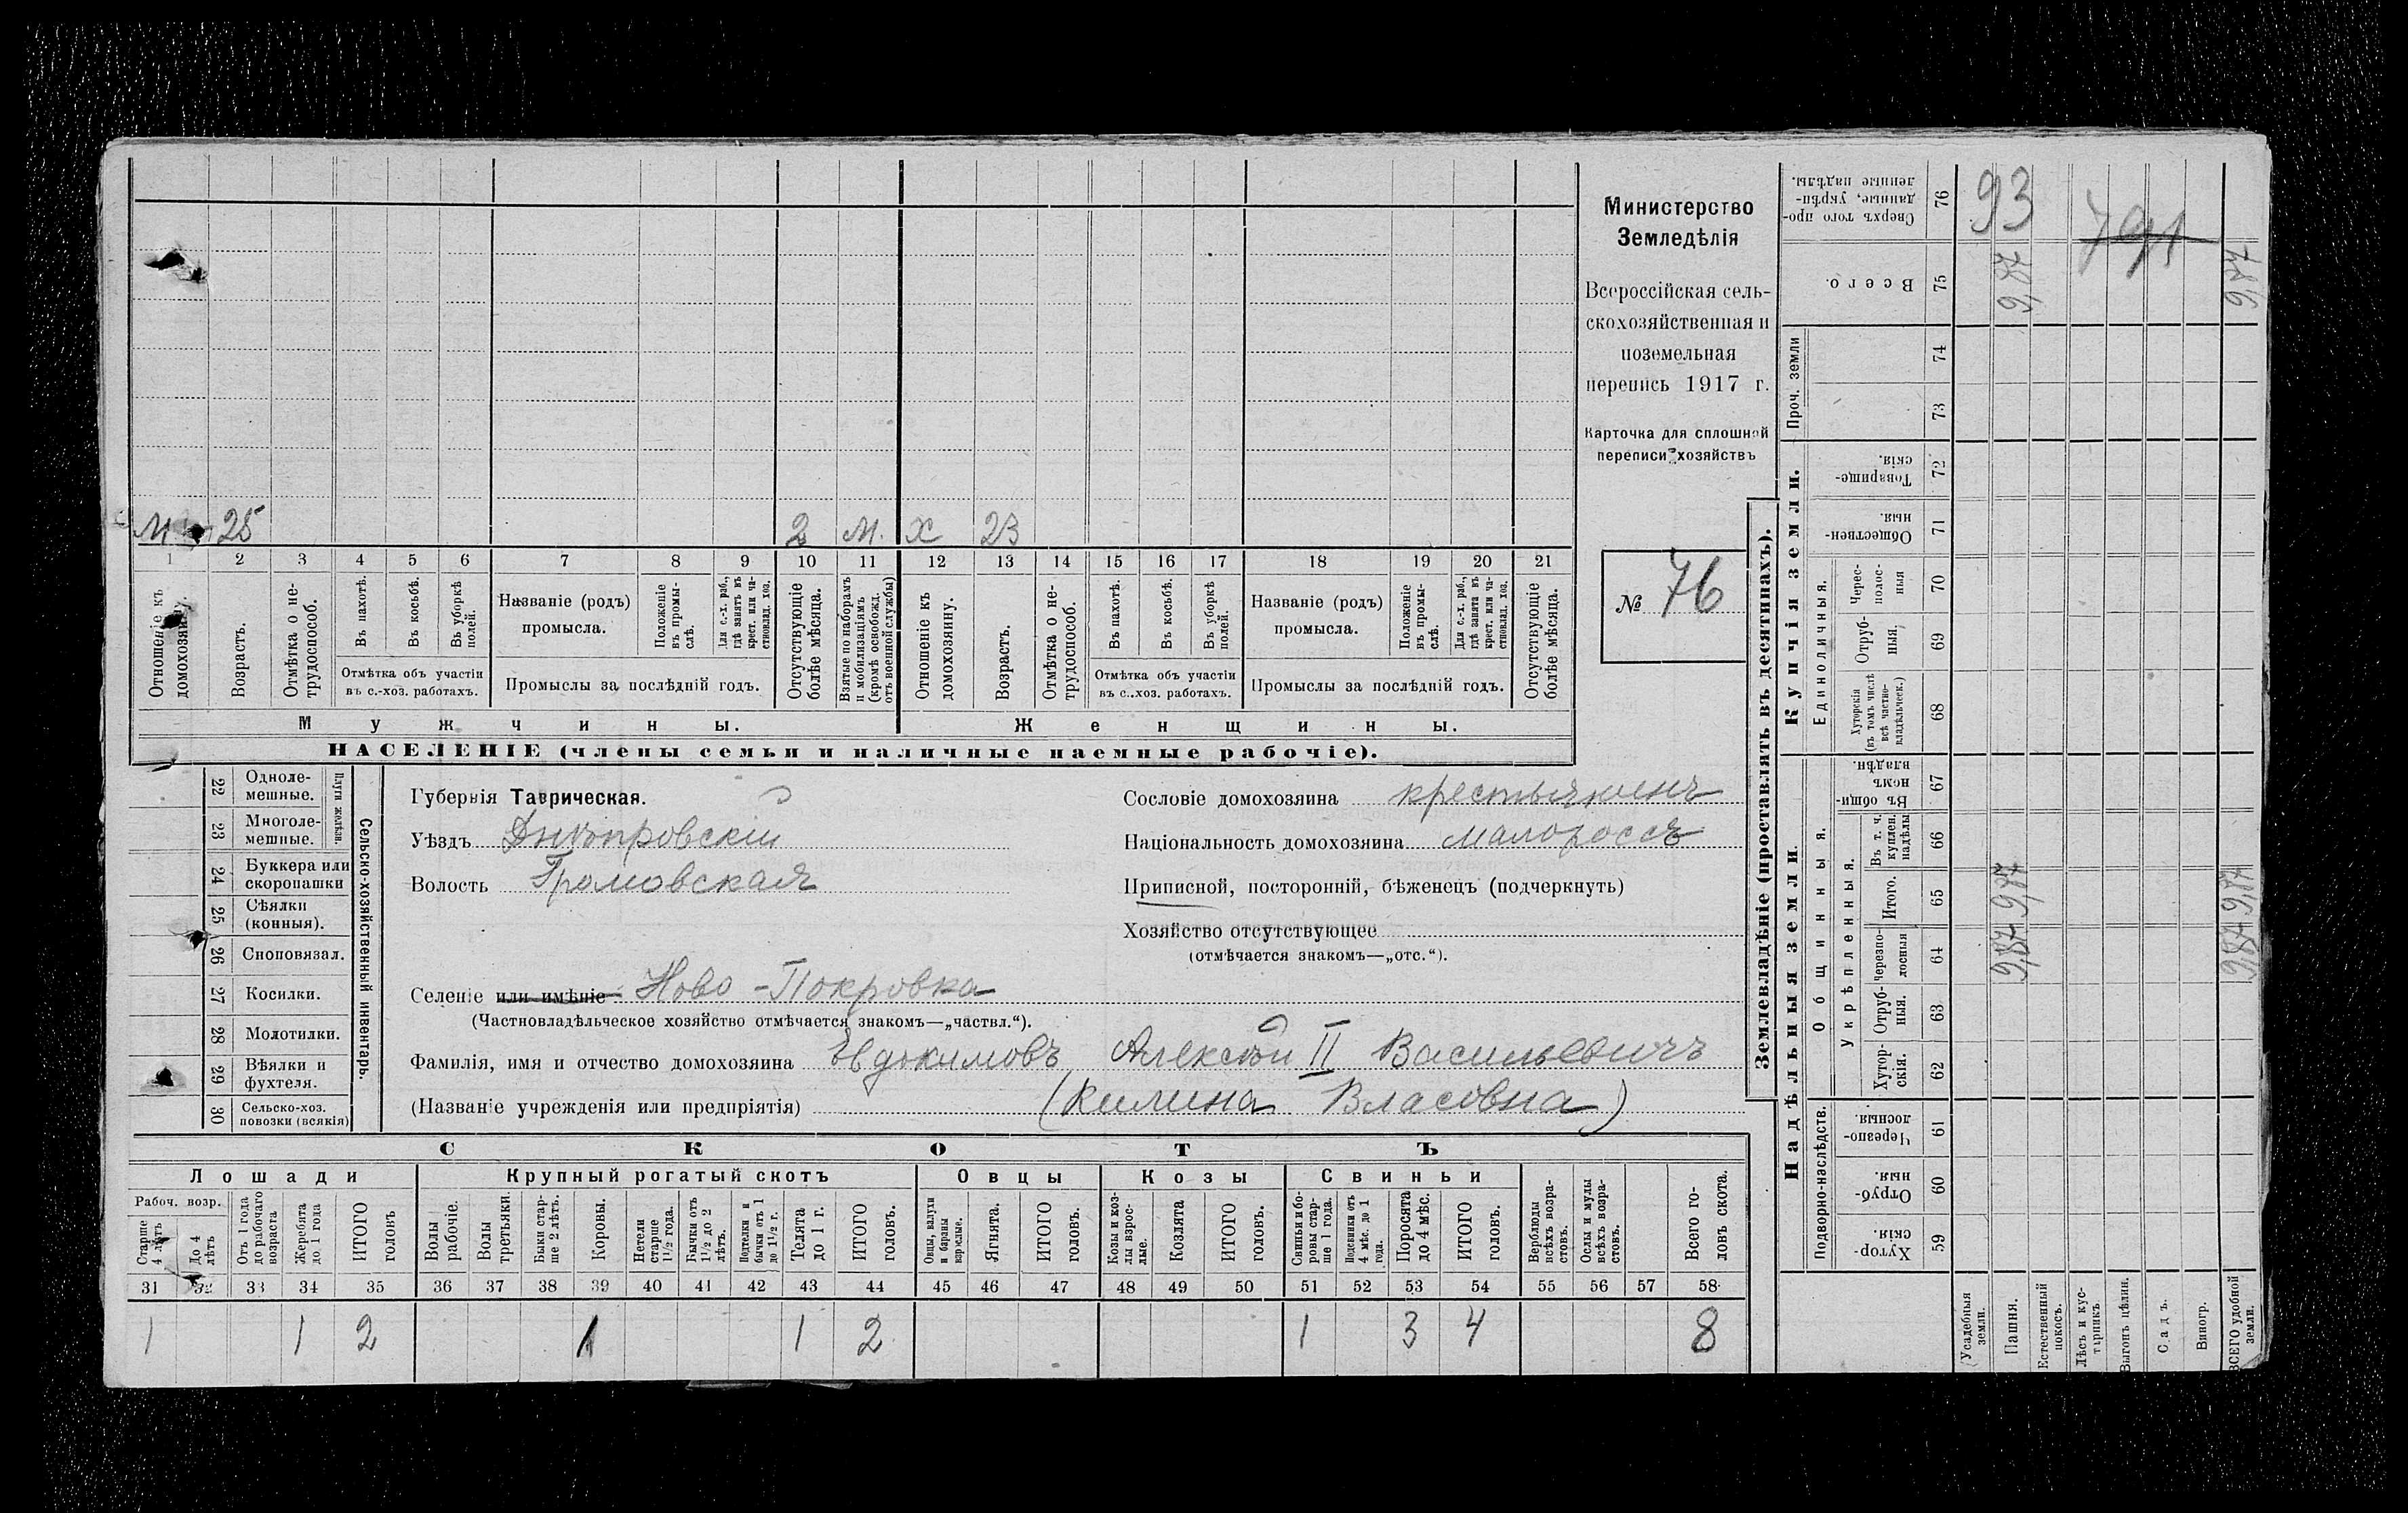 М 25 2 М. Х 23
1 2 3 4 5 6 7 8 9 10 11 12 13 14 15 16 17 18 19 20 21
Отношеніе къ домохозяину.
Возрастъ.
Отмѣтка о не-
трудоспособ.
Въ пахотѣ.
Въ косьбѣ.
Въ уборкѣ
полей.
Отмѣтка объ участіи
въ с.-хоз. работахъ.
Названіе (родъ)
промысла.
Положеніе
въ промы-
слѣ.
Для с.-х. раб.,
гдѣ занятъ въ
крест. или ча-
стновлад. хоз.
Промыслы за послѣдній годъ.
Отсутствующіе
болѣе мѣсяца.
Взятые по наборамъ
и мобилизаціямъ
(кромѣ освобожд.
отъ военной службы)
Отношеніе къ
домохозяину.
Возрастъ.
Отмѣтка о не-
трудоспособ.
Въ пахотѣ.
Въ косьбѣ.
Въ уборкѣ
полей.
Отмѣтка объ участіи
въ с.-хоз. работахъ.
Названіе (родъ)
промысла.
Положеніе
въ промы-
слѣ.
Для с.-х. раб.,
гдѣ занята въ
крест. или ча-
стновлад. хоз.
Промыслы за послѣдній годъ.
Отсутствующіе
болѣе мѣсяца.
Мужчины.
Женщины.
НАСЕЛЕНІЕ (члены семьи и наличные наемные рабочіе).
Министерство
Земледѣлія
Всероссійская сель-
скохозяйственная и
поземельная
перепись 1917 г.
Карточка для сплошной
переписи хозяйствъ
№ 76
22 Одноле-
мешные.
23 Многоле-
мешные.
Плуги желѣзн.
24 Буккера или
скоропашки
25 Сѣялки
(конныя).
26 Сноповязал.
27 Косилки.
28 Молотилки.
29 Вѣялки и
фухтеля.
30 Сельско-хоз.
повозки (всякія)
Сельско-хозяйственный инвентарь.
Губернія Таврическая.
Уѣздъ Днѣпровскій
Волость Громовская
Сословіе домохозяина крестьянинъ
Національность домохозяина малороссъ
Приписной, посторонній, бѣженецъ (подчеркнуть)
Хозяйство отсутствующее
(отмѣчается знакомъ—„отс.“).
Селеніе или имѣніе Ново-Покровка
(Частновладѣльческое хозяйство отмѣчается знакомъ—„частвл.“).
Фамилія, имя и отчество домохозяина Евдокимовъ Алексѣй II Васильевичъ
(Названіе учрежденія или предпріятія) (Килина Власовна)
СКОТЪ
Лошади
Крупный рогатый скотъ
Овцы
Козы
Свиньи
Рабоч. возр.
Старше
4 лѣтъ
До 4
лѣтъ
Отъ 1 года
до рабочаго
возраста
Жеребята
до 1 года
ИТОГО
головъ
Волы
рабочіе.
Волы
третьяки.
Быки стар-
ше 2 лѣтъ.
Коровы.
Нетели
старше
1½ года.
Бычки отъ
1½ до 2
лѣтъ.
Подтелки и
бычки отъ 1
до 1½ г.
Телята
до 1 г.
ИТОГО
головъ.
Овцы, валухи
и бараны
взрослые.
Ягнята.
ИТОГО
головъ.
Козы и коз-
лы взрос-
лые.
Козлята
ИТОГО
головъ.
Свиньи и бо-
ровы стар-
ше 1 года.
Подсвинки отъ
4 мѣс. до 1
года.
Поросята
до 4 мѣс.
ИТОГО
головъ.
Верблюды
всѣхъ возра-
стовъ.
Ослы и мулы
всѣхъ возра-
стовъ.
Всего го-
ловъ скота.
31 32 33 34 35 36 37 38 39 40 41 42 43 44 45 46 47 48 49 50 51 52 53 54 55 56 57 58
1 1 2 1 1 2 1 3 4 8
Землевладѣніе (проставлять въ десятинахъ).
Сверхъ того про-
данные, укрѣп-
ленные надѣлы.
76
93
791
Всего.
75
9,87
9,87
Проч. земли
74
73
Купчія земли.
Товарище-
скія.
72
Обществен-
ныя.
71
Единоличныя.
Черес-
полос-
ныя
70
Отруб-
ныя.
69
Хуторскія
(въ томъ числѣ
всѣ частно-
владѣльческ.)
68
Надѣльныя земли.
Общинныя.
Въ общи-
номъ
владѣн.
67
Укрѣпленныя.
Въ т. ч.
куплен.
надѣлы
66
Итого.
65
9,87
9,87
Черезпо-
лосныя
64
9,87
9,87
Отруб-
ныя.
63
Хутор-
скія.
62
Подворно-наслѣдств.
Черезпо-
лосныя.
61
Отруб-
ныя.
60
Хутор-
скія.
59
Усадебныя
земли.
Пашня.
Естественный
покосъ.
Лѣсъ и кус-
тарникъ.
Выгонъ цѣлин.
Садъ.
Виногр.
ВСЕГО удобной
земли.